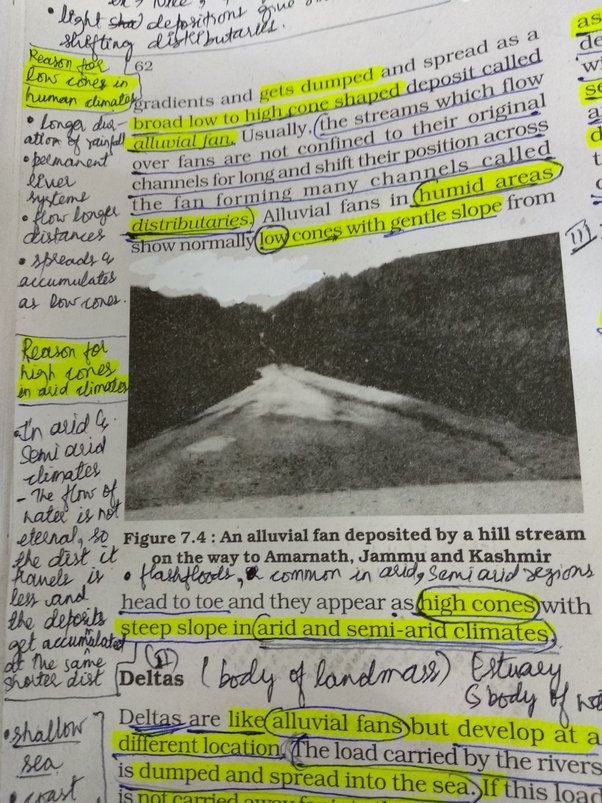 • light depositions give
shifting distributaries.
Reason for
low cones in
human climates
• longer dur-
ation of rainfall
• permanent
river
systems
• flow longer
distances
• spreads &
accumulates
as low cones.
Reason for
high cones
in arid climates
• In arid &
Semi arid
climates
- The flow of
water is not
eternal, so
the dist it
travels is
less and
the deposits
get accumulated
at the same
shorter dist
• shallow
sea
• coast
62
gradients and gets dumped and spread as a
broad low to high cone shaped deposit called
alluvial fan. Usually, the streams which flow
over fans are not confined to their original
channels for long and shift their position across
the fan forming many channels called
distributaries. Alluvial fans in humid areas
show normally low cones with gentle slope from
Figure 7.4 : An alluvial fan deposited by a hill stream
on the way to Amarnath, Jammu and Kashmir
• flashfloods, common in arid, semi arid regions
head to toe and they appear as high cones with
steep slope in arid and semi-arid climates.
Deltas (body of landmass) Estuary
body of
Deltas are like alluvial fans but develop at a
different location. The load carried by the rivers
is dumped and spread into the sea. If this load
is not carried away far into
as
de
wi
se
a
d
t
III